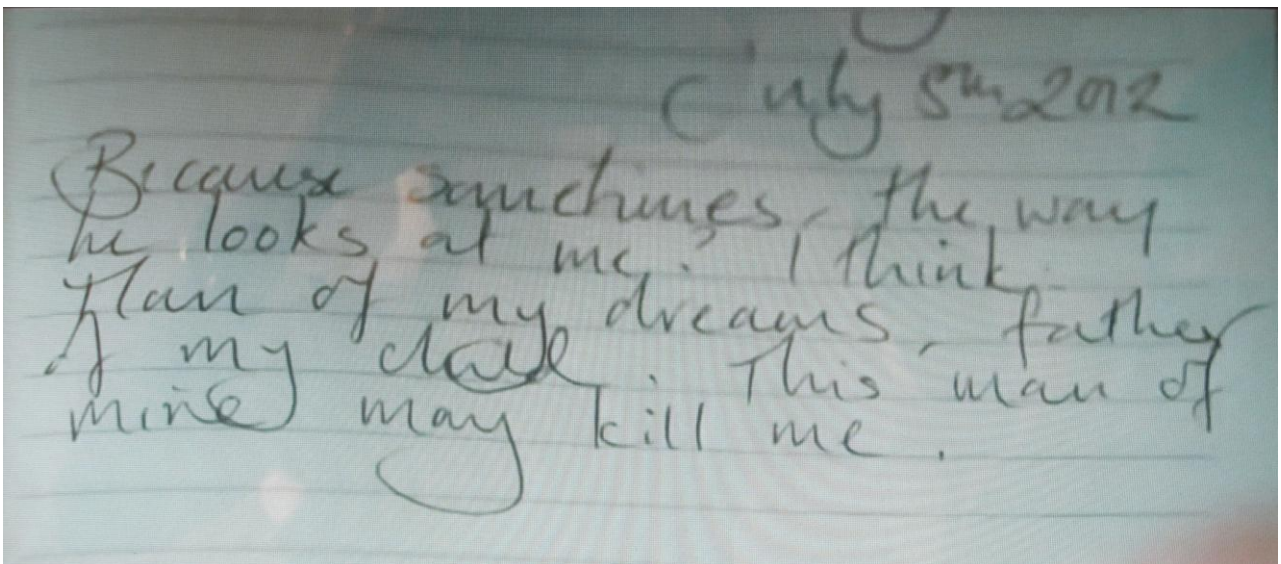 July 5th 2012
Because sometimes, the way
he looks at me? I think:
Man of my dreams, father
of my child. This man of
mine may kill me.